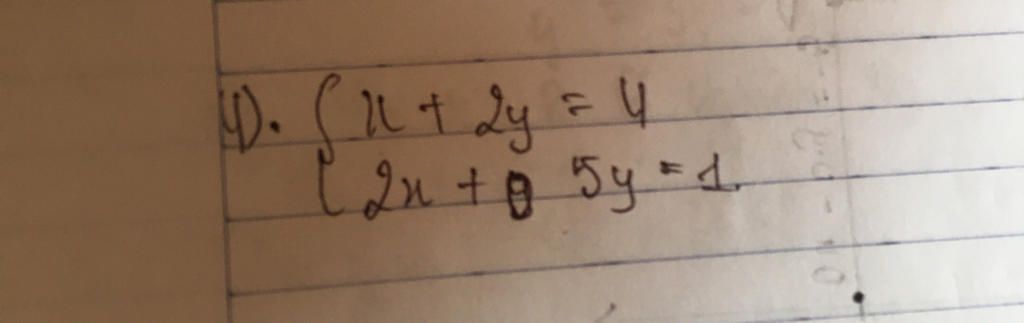 4). { x + 2y = 4
2x + 5y = 1.